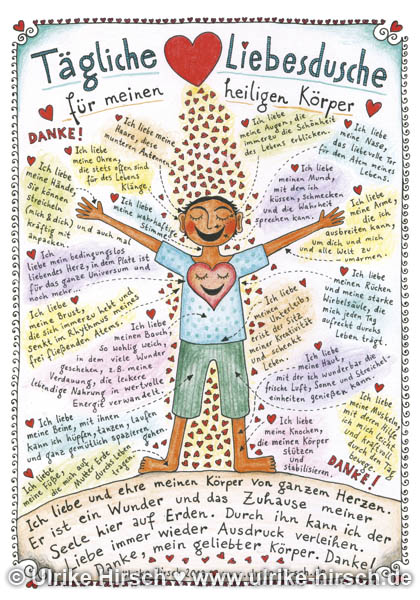 Tägliche Liebesdusche
für meinen heiligen Körper
DANKE!
Ich liebe meine Haare, diese munteren Antennen.
Ich liebe meine Augen, die immerzu die Schönheit des Lebens erblicken.
Ich liebe meine Nase, das liebevolle Tor für den Atem meines Lebens.
Ich liebe meine Ohren, die stets offen sind für des Lebens Klänge.
Ich liebe meinen Mund, mit dem ich küssen, schmecken und die Wahrheit sprechen kann.
Ich liebe meine Hände. Sie können streicheln (mich & dich) und auch mal kräftig mit anpacken.
Ich liebe meine wahrhaftige Stimme.
Ich liebe meine Arme, die ich ausbreiten kann, um dich und mich und alle Welt zu umarmen.
Ich liebe mein bedingungslos liebendes Herz, in dem Platz ist für das ganze Universum und noch mehr.
Ich liebe meinen Rücken und meine starke Wirbelsäule, die mich jeden Tag aufrecht durchs Leben trägt.
Ich liebe meine Brust, die sich immerzu hebt und senkt im Rhythmus meines frei fließenden Atems.
Ich liebe meinen Unterleib,
Ich liebe meinen Bauch, so wohlig weich, in dem viele Wunder geschehen, z.B. meine Verdauung, die leckere lebendige Nahrung in wertvolle Energie verwandelt.
Ich liebe meine Haut, mit der ich wunderbar die frische Luft, Sonne und Streicheleinheiten genießen kann.
Ich liebe meine Beine, mit ihnen kann ich hüpfen, tanzen, laufen und ganz gemütlich spazieren gehen.
Ich liebe meine Muskeln, mit deren Hilfe
Ich liebe meine Knochen, die meinen Körper stützen und stabilisieren.
Ich liebe meine Füße, die mich auf Mutter Erde durchs Leben tragen.
DANKE!
Ich liebe und ehre meinen Körper von ganzem Herzen.
Er ist ein Wunder und das Zuhause meiner
Seele hier auf Erden. Durch ihn kann ich der
Liebe immer wieder Ausdruck verleihen.
Danke, mein geliebter Körper. Danke!
© Ulrike Hirsch ♥ www.ulrike-hirsch.de